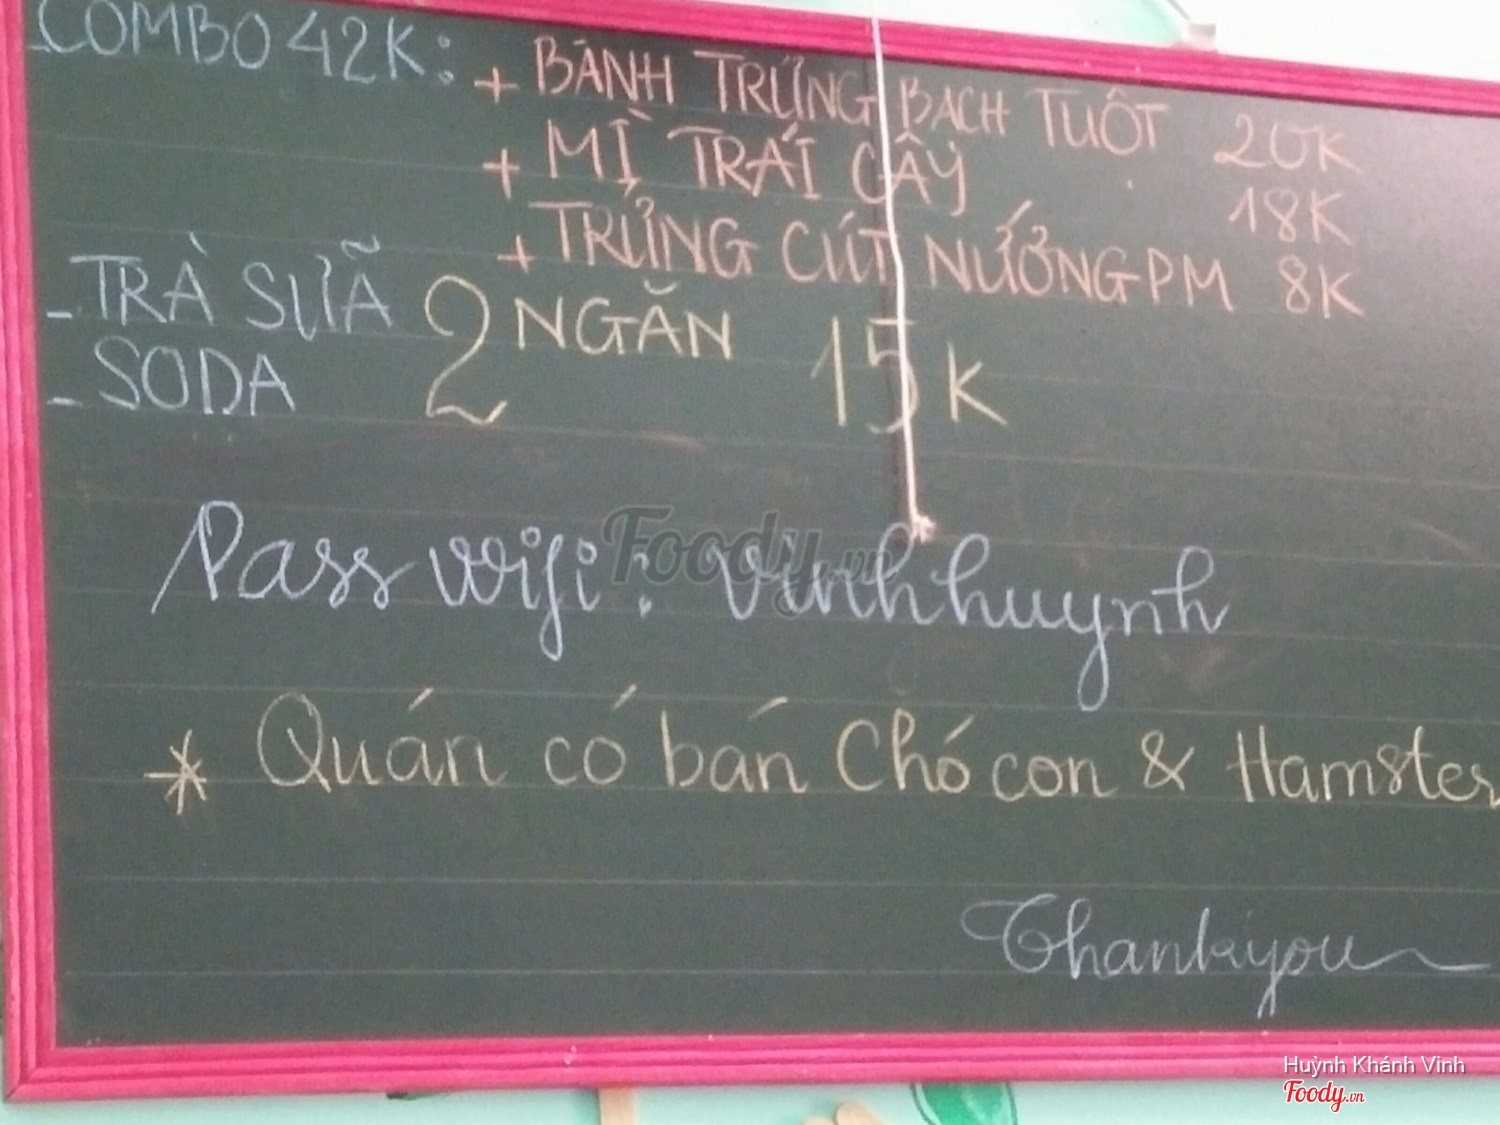 -COMBO 42K: + BÁNH TRỨNG BẠCH TUỘT 20K
+ MÌ TRÁI CÂY 18K
+ TRỨNG CÚT NƯỚNG PM 8K
- TRÀ SỮA 2 NGĂN 15K
- SODA
Pass wifi: vinhhuynh
* Quán có bán Chó con & Hamster
Thankyou
Foody.vn
Huỳnh Khánh Vinh
Foody.vn